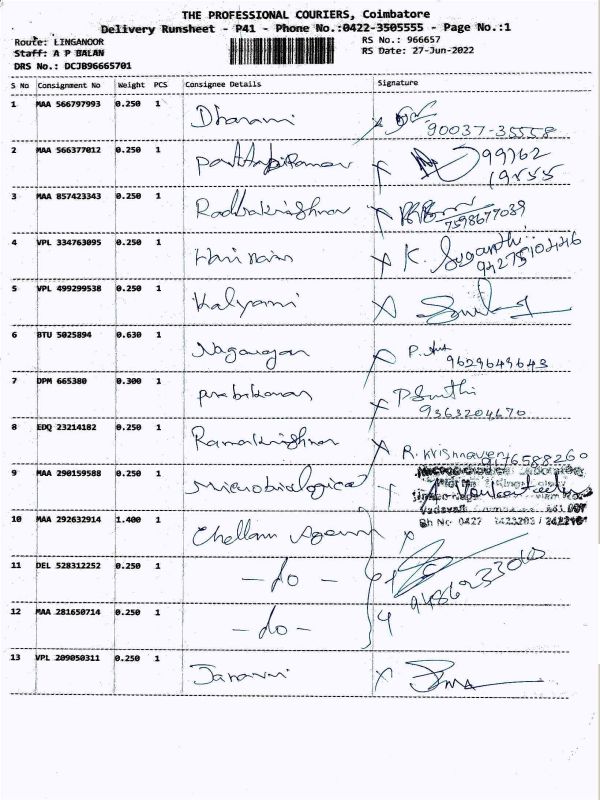 THE PROFESSIONAL COURIERS, Coimbatore
Delivery Runsheet - P41 - Phone No.:0422-3505555 - Page No.:1
Route: LINGANOOR RS No.: 966657
Staff: A P BALAN RS Date: 27-Jun-2022
DRS No.: DCJB96665701
S No Consignment No Weight PCS Consignee Details Signature
1 MAA 566797993 0.250 1 Dharani x
90037-35558
2 MAA 566377012 0.250 1 x 99762
19555
3 MAA 857423343 0.250 1 Radhakrishnan x
7598677039
4 VPL 334763095 0.250 1 x K. Suganthi
5 VPL 499299538 0.250 1 Kalyani x
6 BTU 5025894 0.630 1 Nagarajan x P.
9629649643
7 DPM 665380 0.300 1 Prabakaran x
9363204670
8 EDQ 23214182 0.250 1 Ramakrishnan x R. Krishnaveni
9176588260
9 MAA 290159588 0.250 1 Microbiological x
10 MAA 292632914 1.400 1 Chellam Agency x
11 DEL 528312252 0.250 1 - do -
12 MAA 281650714 0.250 1 - do -
13 VPL 209050311 0.250 1 x